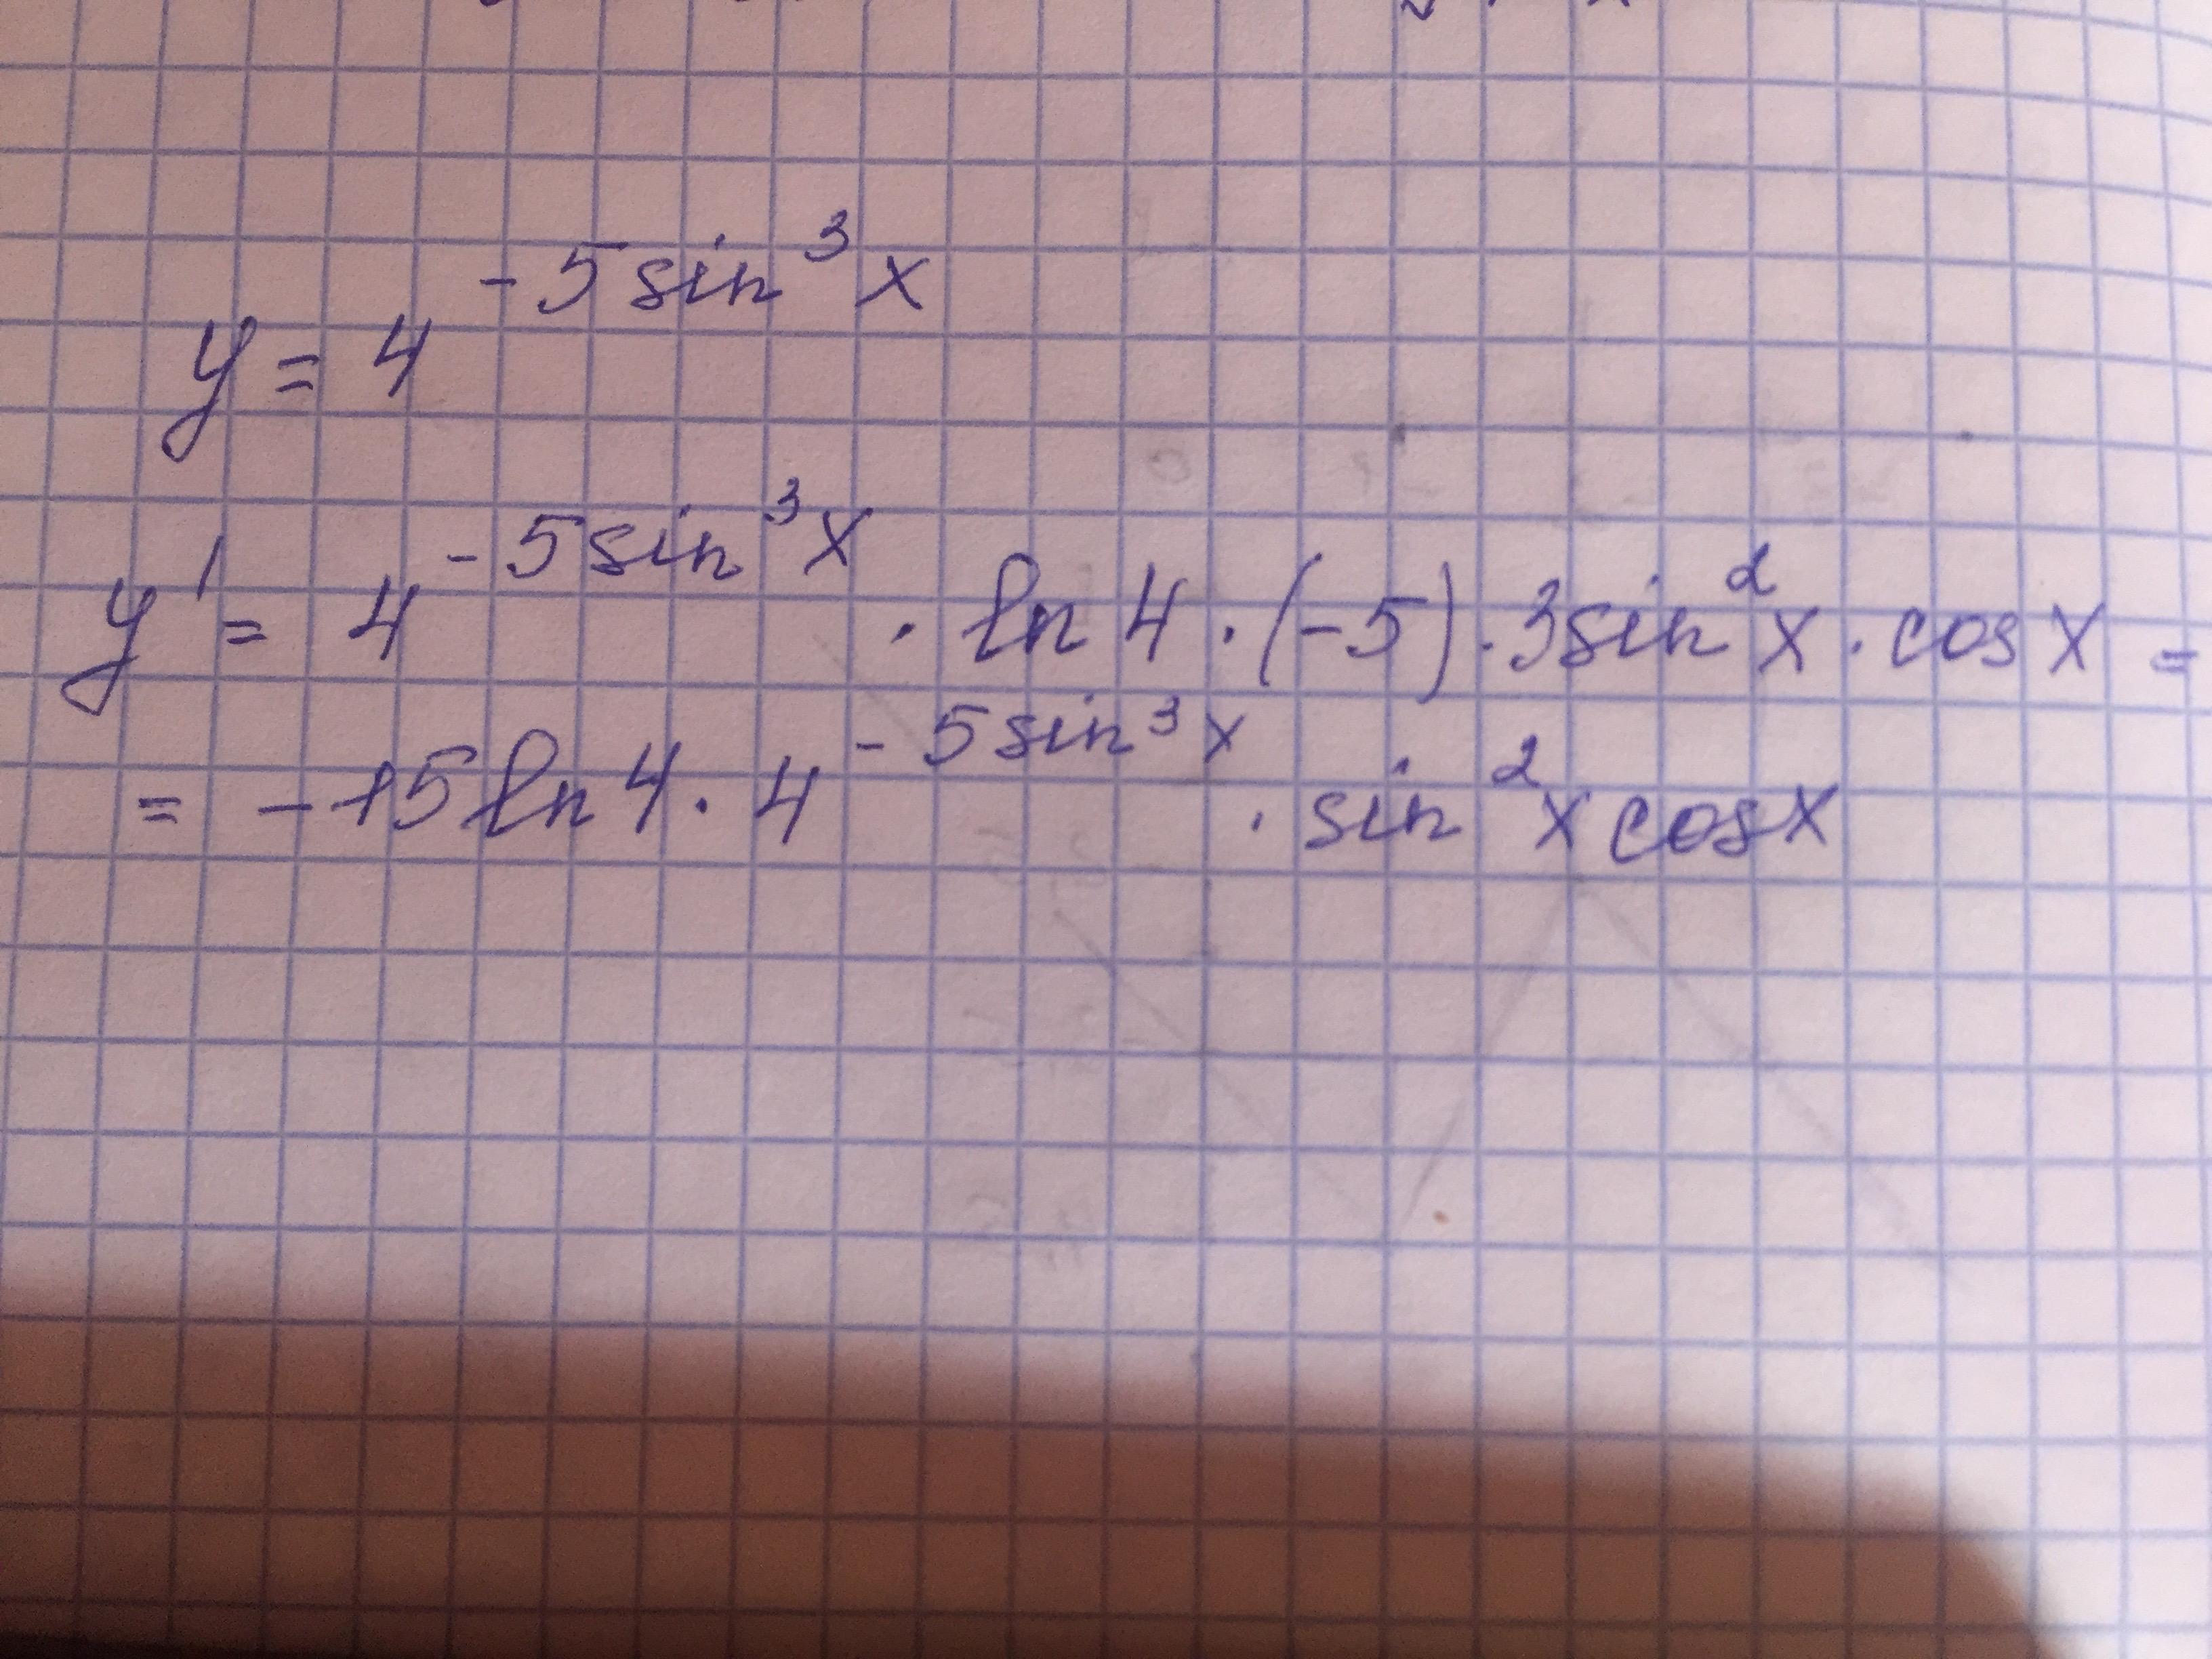 y = 4^{-5sin^3 x}
y' = 4^{-5sin^3 x} · ln 4 · (-5) · 3sin^2 x · cos x =
= -15 ln 4 · 4^{-5sin^3 x} · sin^2 x cos x